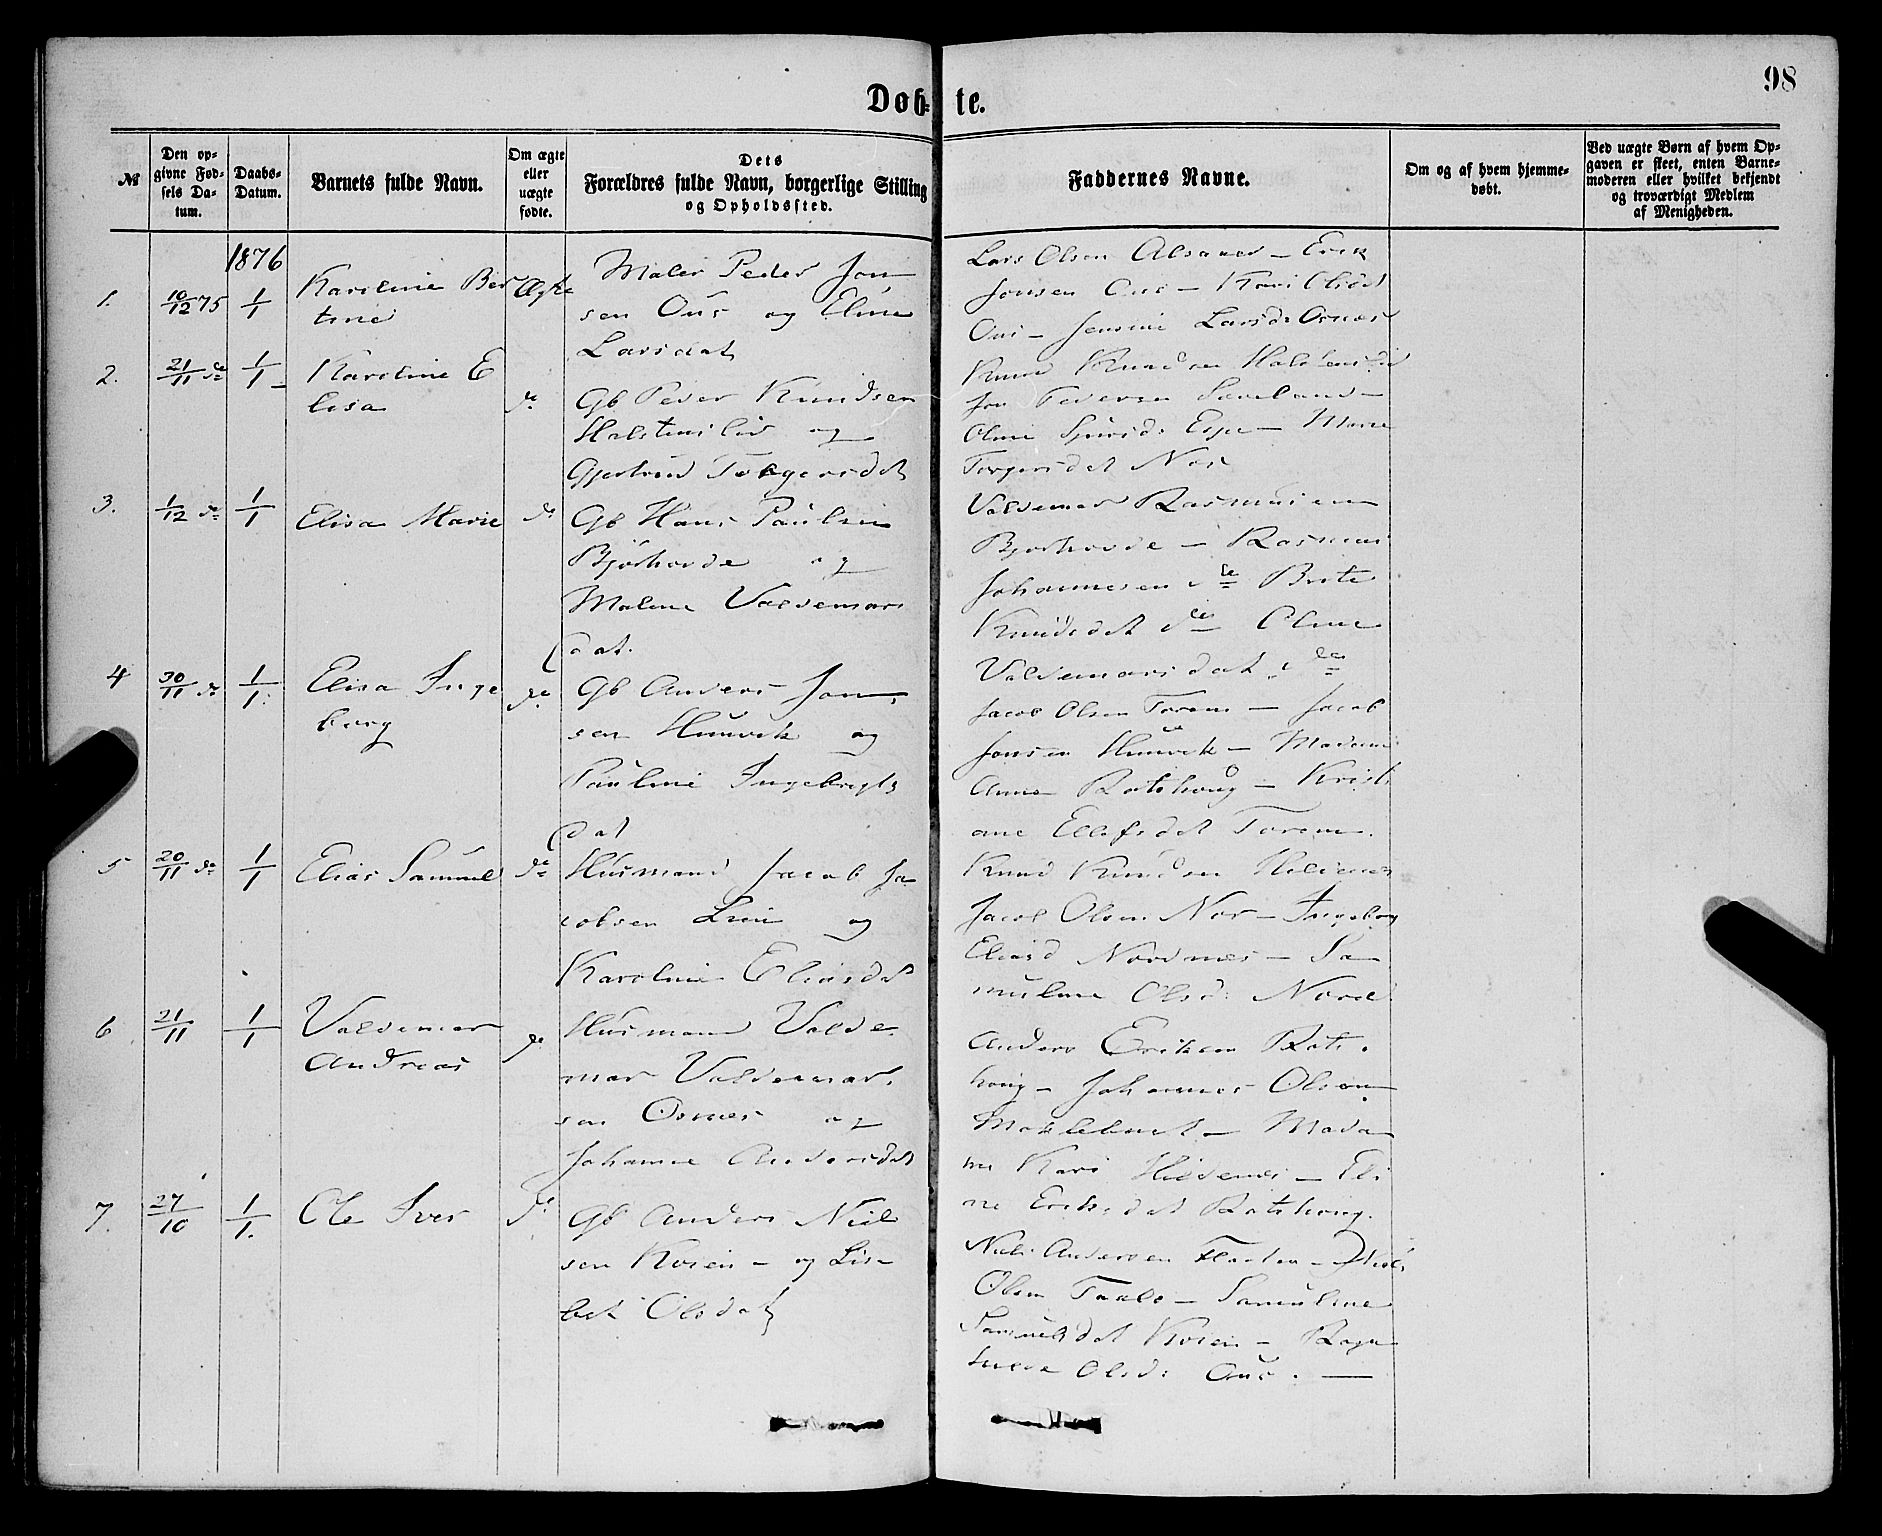 98
Døb- te.
№
Den op-
givne Fød-
sels Da-
tum.
Daabs-
Datum.
Barnets fulde Navn.
Om ægte
eller
uægte
fødte.
Dets
Forældres fulde Navn, borgerlige Stilling
og Opholdssted.
Faddernes Navne.
Om og af hvem hjemme-
døbt.
Ved uægte Børn af hvem Op-
gaven er skeet, enten Barne-
moderen eller hvilket bekjendt
og troværdigt Medlem
af Menigheden.
1876
1. 10/12 75 1/1 Karoline Ber
tine
Ægte
Maler Peder Jon
sen Ous og Eline
Larsdat
Lars Olsen - Erik
Jonsen Ous - Kari Olsd
Ous - Jensine Larsd. Osnes
2. 21/11 do 1/1 Karoline E
lisa
do
Gb Peder Knudsen
Halstenslid og
Gjertrud Torgersdat
Knud Knudsen Halstenslid
Jon Pedersen -
Oline Sjursd. Espe - Marie
Torgersdat Nos
3. 1/12 do 1/1 Elisa Marie do
Gb Hans Paulsen
Bjørhovde og
Maline Valdemars
dat.
Valdemar Rasmusen
Bjørhovde - Rasmus
Johannesen de Brite
Knudsdat de Oline
Valdemarsdat de
4 30/11 do 1/1 Elisa Inge
borg
do
Gb Anders Jon
sen Hunvik og
Pauline Ingebrigts
dat
Jacob Olsen - Jacob
Jonsen Hunvik - Madam
Anne Rotehoug - Kristi
ane Ellefsdat
5 20/11 do 1/1 Elias Samuel do
Husmand Jacob Ja
cobsen Lien og
Karoline Eliasdat
Knud Knudsen Hildenes
Jacob Olsen Nos - Ingeborg
Eliasd Nordnes - Sa
muline Olsd.
6 21/11 1/1 Valdemar
Andreas
do
Husmand Valde
mar Valdemar
sen Osnes og
Johanne Andersdat
Anders Eriksen Rote
houg - Johannes Olsen
- Mada
me Kari Hildenes - Eli
ne Eriksdat Rotehoug.
7. 27/10 1/1 Ole Iver do
Gb Anders Niel
sen Kvien - og Lis
bet Olsdat
Niels Andersen - Niels
Olsen - Samuline
Samuelsdat Kvien - Ragn
hilde Olsd. Ous. -